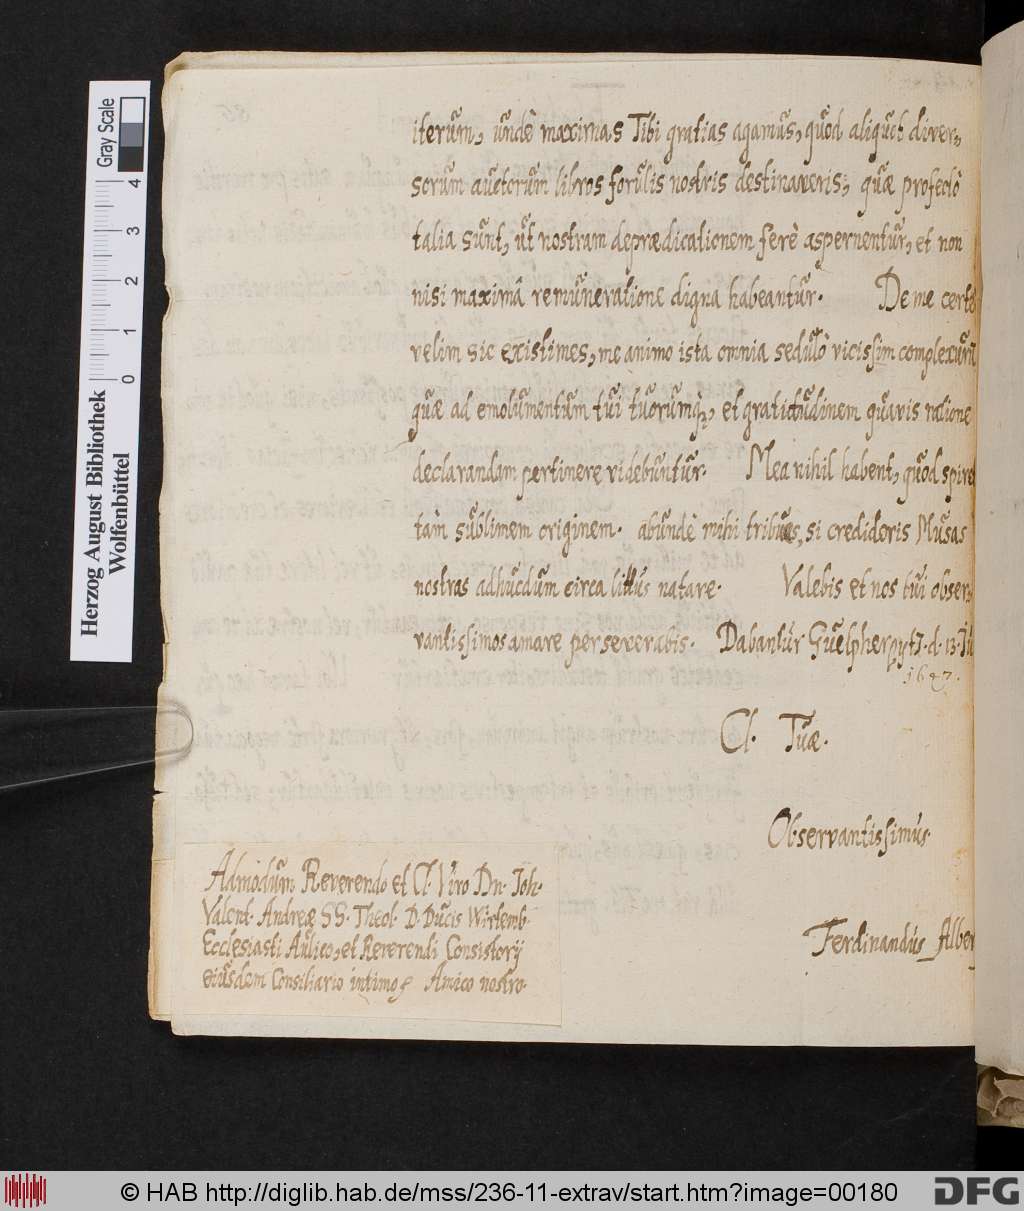 iterum, undè maximas Tibi gratias agamus, quòd aliquot diver,
sorum auctorum libros forulis nostris destinaveris; quæ profectò
talia sunt, ut nostram deprædicationem ferè aspernentur, et non
nisi maximâ remuneratione digna habeantur. De me certò
velim sic existimes, me animo ista omnia sedulò vicissim complexurū
quæ ad emolumentum tui tuorumq;, et gratitudinem quavis ratione
declarandam pertinere videbuntur. Mea nihil habent, quod spiret
tàm sublimem originem. abundè mihi tribues, si credideris Musas
nostras adhucdum circa littus natare. Valebis et nos tui obser,
vantissimos amare perseverabis. Dabantur Guelpherpyti. d. 13. Ju
1647.
Cl. Tuæ.
Observantissimus
Ferdinandus Alber
Admodum Reverendo et Cl. Viro Dn. Joh.
Valent. Andreæ SS. Theol. D. Ducis Wirtemb.
Ecclesiasti Aulico, et Reverendi Consistorij
eiusdem Consiliario intimo, Amico nostro.
Herzog August Bibliothek
Wolfenbüttel
Gray Scale
0 1 2 3 4
© HAB http://diglib.hab.de/mss/236-11-extrav/start.htm?image=00180
DFG